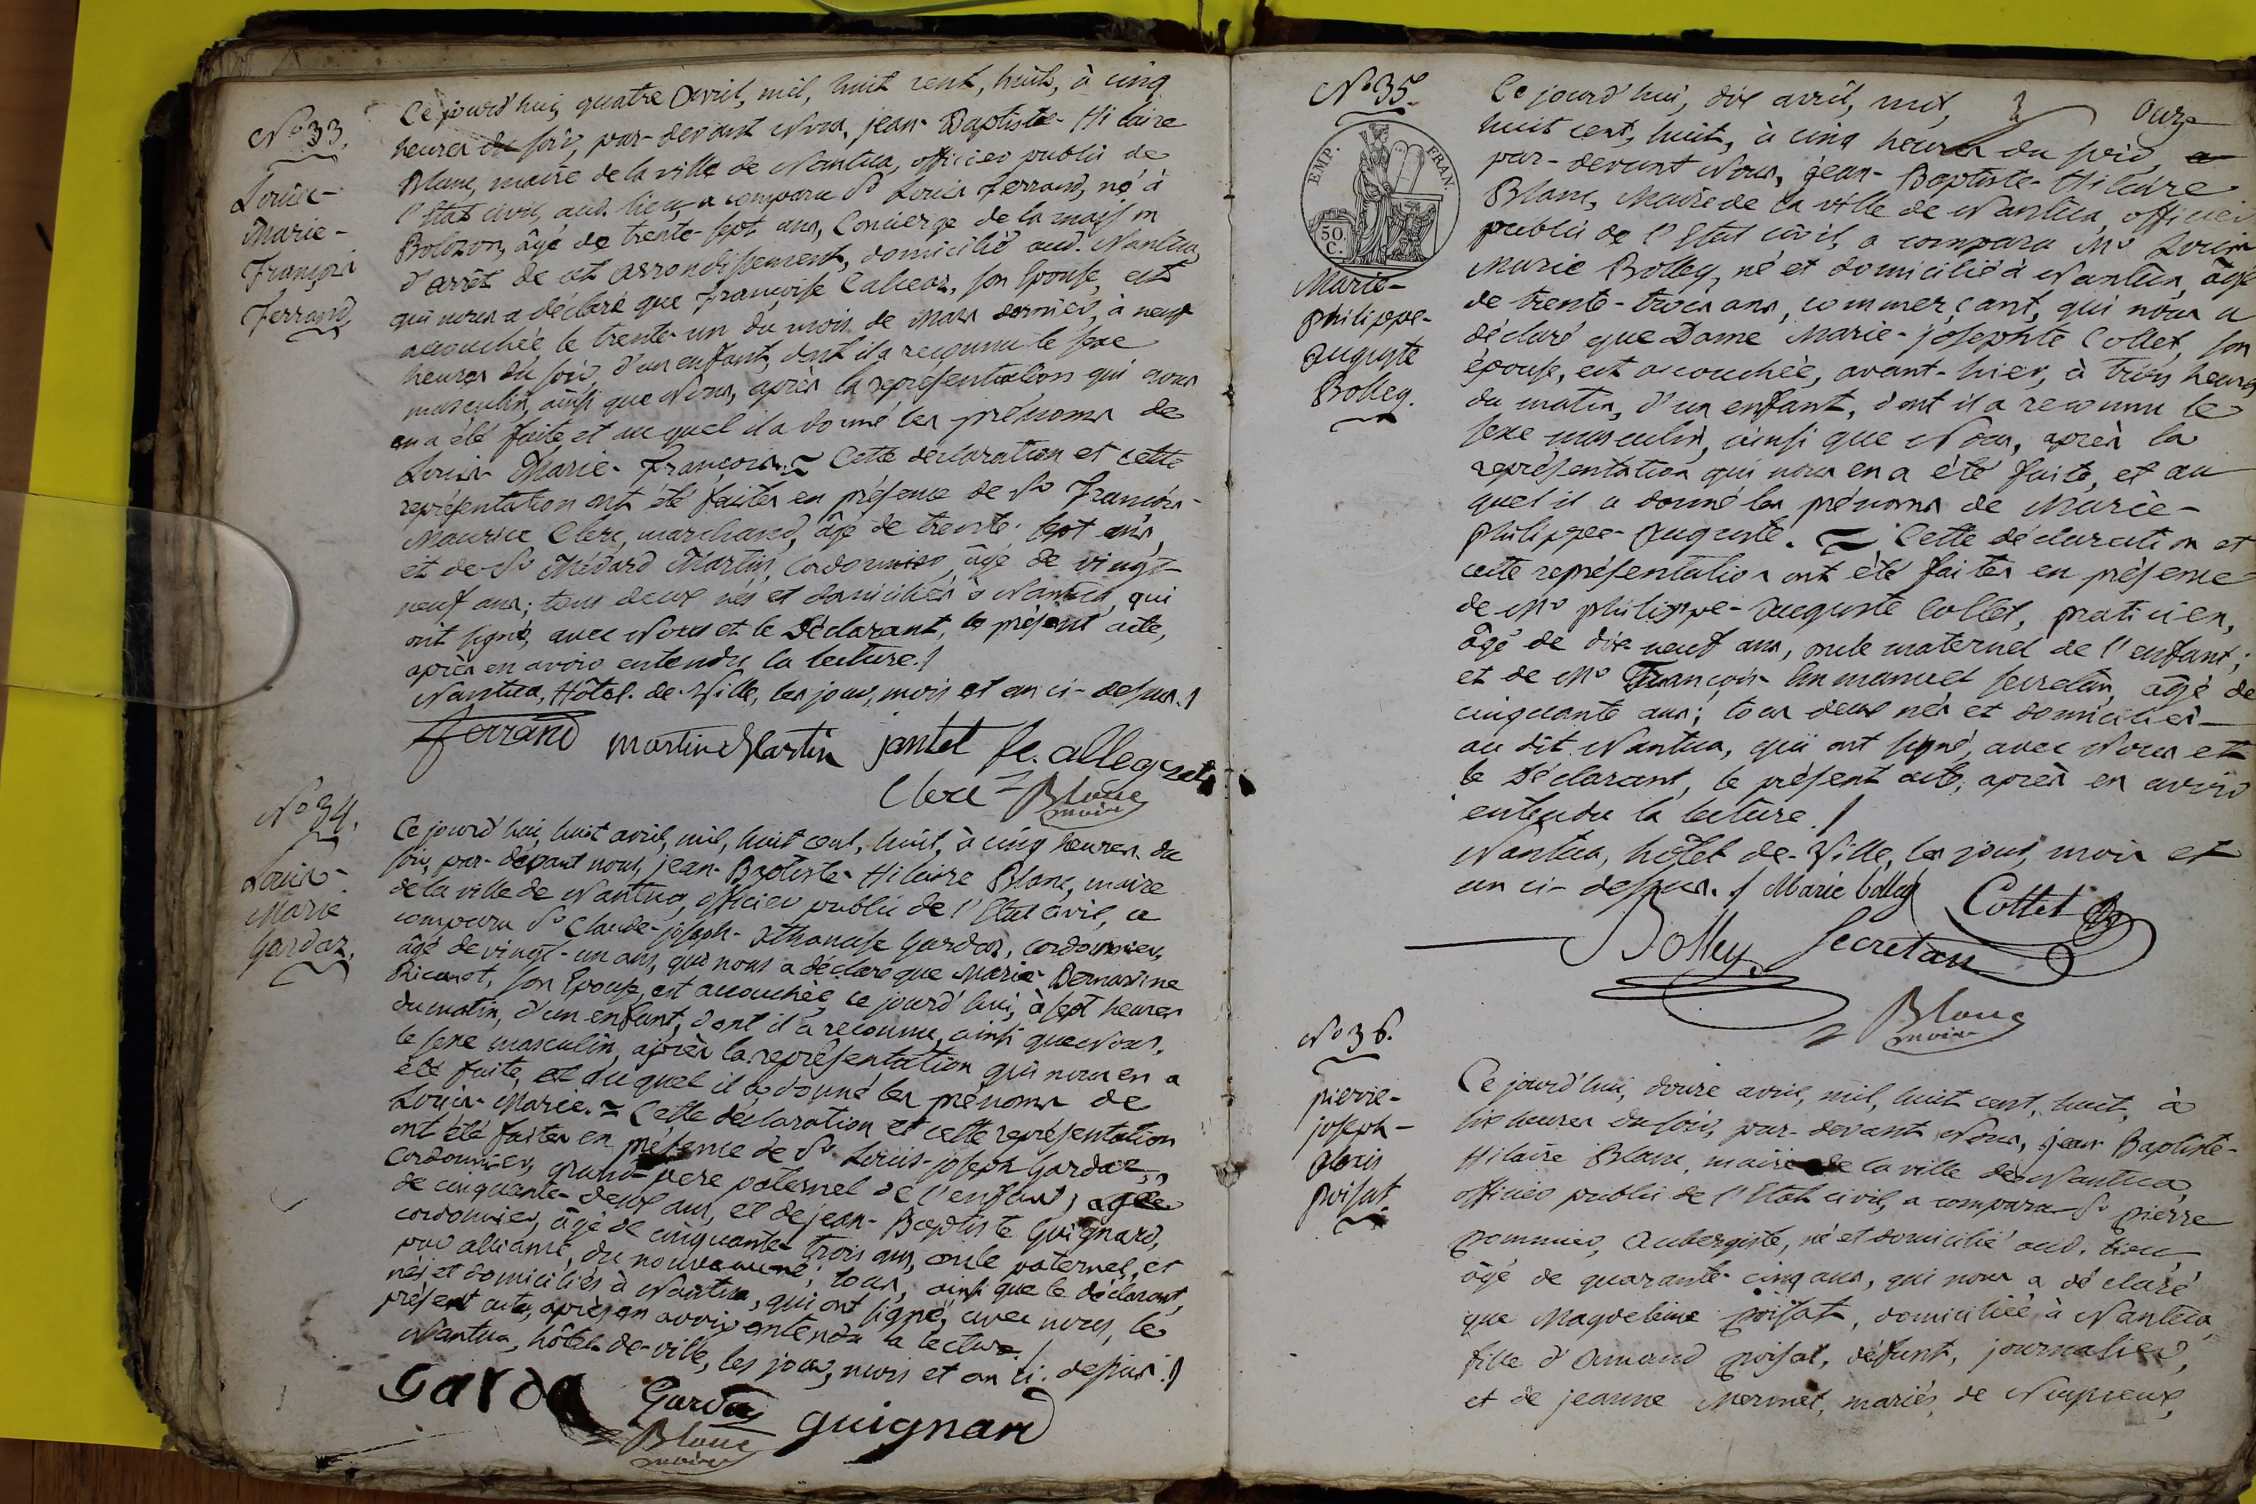 N° 33.
Louis-
Marie-
François
Ferrand
Ce jourd'hui, quatre avril, mil, huit cent, huit, à cinq
heures du soir, par-devant Nous, jean-Baptiste-Hilaire
Blanc, maire de la ville de Nantua, officier public de
l'Etat civil, aud. lieu, a comparu Sr Louis Ferrand, né à
Bolozon, âgé de trente-sept ans, Concierge de la maison
d'arrêt de cet arrondissement, domicilié aud. Nantua,
qui nous a déclaré que françoise son Epouse, est
accouchée le trente-un du mois de Mars dernier, à neuf
heures du soir, d'un enfant, dont il a reconnu le sexe
masculin, ainsi que Nous, après la représentation qui nous
en a été faite et auquel il a donné les prénoms de
Louis-Marie-François. Cette déclaration et cette
représentation ont été faites en présence de Sr François-
Maurice Clerc, marchand, âgé de trente-sept ans,
et de Sr Médard Martin, Cordonnier, âgé de vingt-
neuf ans; tous deux nés et domiciliés à Nantua, qui
ont signé, avec Nous et le Déclarant, le présent acte,
après en avoir entendu la lecture./
Nantua, Hôtel-de-Ville, les jour, mois et an ci-dessus./
ferrand martin Martin jantet fe. allegret
Clerc Blanc
maire
N° 34.
Louis-
Marie
Gardaz.
Ce jourd'hui, huit avril, mil, huit cent, huit, à cinq heures du
soir, par-devant nous, jean-Baptiste-Hilaire Blanc, maire
de la ville de Nantua, officier public de l'Etat civil, a
comparu Sr Claude-joseph-Athanase Gardaz, cordonnier,
âgé de vingt-un ans, qui nous a déclaré que Marie-Bernardine
son Epouse, est accouchée, ce jourd'hui, à sept heures
du matin, d'un enfant, dont il a reconnu, ainsi que Nous,
le sexe masculin, après la représentation qui nous en a
été faite, et auquel il a donné les prénoms de
Louis-Marie. Cette déclaration et cette représentation
ont été faites en présence de Sr Louis-joseph Gardaz,
cordonnier, grand-père paternel de l'enfant, agée
de cinquante-deux ans, et de jean-Baptiste Guignard,
cordonnier, âgé de cinquante-trois ans, oncle paternel, et
par alliance, du nouveau né; tous, ainsi que le déclarant,
nés et domiciliés à Nantua, qui ont signé, avec nous, le
présent acte, après en avoir entendu la lecture./
Nantua, hôtel-de-ville, les jour, mois et an ci-dessus./
Garda Gardaz guignard
Blanc
maire
onze
N° 35.
EMP. FRAN.
50 C.
Marie-
philippe-
auguste
Bolley.
Ce jourd'hui, dix avril, mil,
huit cent, huit, à cinq heures du soir,
par-devant Nous, jean-Baptiste-Hilaire
Blanc, Maire de la ville de Nantua, officier
public de l'Etat civil, a comparu Mr Louis
Marie Bolley, né et domicilié à Nantua, âgé
de trente-trois ans, commerçant, qui nous a
déclaré que Dame Marie-josephte Collet, son
épouse, est accouchée, avant-hier, à trois heures
du matin, d'un enfant, dont il a reconnu le
sexe masculin, ainsi que Nous, après la
représentation qui nous en a été faite, et au
quel il a donné les prénoms de Marie-
philippe-auguste. Cette déclaration et
cette représentation ont été faites en présence
de Mr philippe-auguste Collet, praticien,
âgé de dix-neuf ans, oncle maternel de l'enfant;
et de Mr François-Emmanuel Secretan, âgé de
cinquante ans; tous deux nés et domiciliés
au dit Nantua, qui ont signé, avec Nous et
le Déclarant, le présent acte, après en avoir
entendu la lecture./
Nantua, hôtel-de-Ville, les jour, mois et
an ci-dessus./ Marie bolley Collet
Bolley Secretan
Blanc
maire
N° 36.
pierre-
joseph-
alexis
poisat.
Ce jourd'hui, douze avril, mil, huit cent, huit, à
six heures du soir, par-devant Nous, jean Baptiste-
Hilaire Blanc, maire de la ville de Nantua,
officier public de l'Etat civil, a comparu Sr pierre
pommier, Aubergiste, né et domicilié aud. lieu,
âgé de quarante-cinq ans, qui nous a déclaré
que Magdeleine poisat, domiciliée à Nantua,
fille d'Amand poisat, défunt, journalier,
et de jeanne Mermet, mariés, de